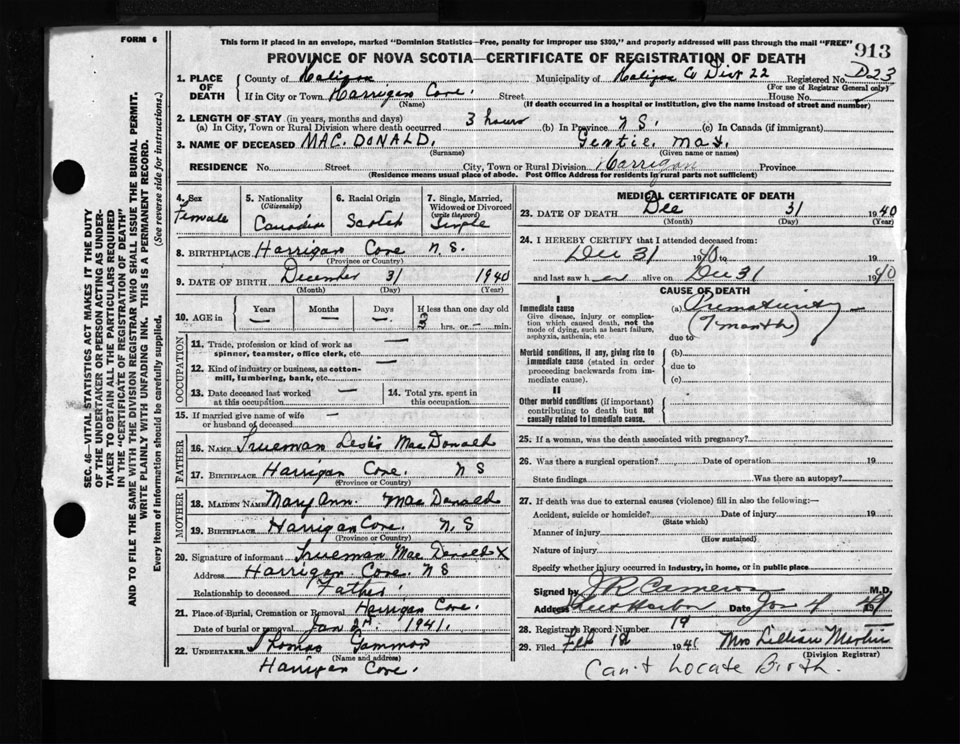 FORM 6
This form if placed in an envelope, marked "Dominion Statistics—Free, penalty for improper use $300," and properly addressed will pass through the mail "FREE"
913
PROVINCE OF NOVA SCOTIA—CERTIFICATE OF REGISTRATION OF DEATH
1. PLACE OF DEATH
County of Halifax
Municipality of Halifax Co Dist 22
Registered No. D23
(For use of Registrar General only)
If in City or Town Harrigan Cove.
(Name)
Street
House No.
(If death occurred in a hospital or institution, give the name instead of street and number)
2. LENGTH OF STAY (in years, months and days)
(a) In City, Town or Rural Division where death occurred 3 hours
(b) In Province N S.
(c) In Canada (if immigrant)
3. NAME OF DECEASED MAC. DONALD. Gertie. May.
(Surname)
(Given name or names)
RESIDENCE No. Street City, Town or Rural Division Harrigan Province
(Residence means usual place of abode. Post Office Address for residents in rural parts not sufficient)
4. Sex
Female
5. Nationality
(Citizenship)
Canadian
6. Racial Origin
Scotch
7. Single, Married, Widowed or Divorced
(write the word)
Single
8. BIRTHPLACE Harrigan Cove N.S.
(Province or Country)
9. DATE OF BIRTH December 31 1940
(Month) (Day) (Year)
10. AGE in
Years
Months
Days
If less than one day old
3 hrs. or — min.
OCCUPATION
11. Trade, profession or kind of work as spinner, teamster, office clerk, etc. —
12. Kind of industry or business, as cotton-mill, lumbering, bank, etc. —
13. Date deceased last worked at this occupation —
14. Total yrs. spent in this occupation
15. If married give name of wife or husband of deceased —
FATHER
16. NAME Trueman Leslie MacDonald
17. BIRTHPLACE Harrigan Cove. N S
(Province or Country)
MOTHER
18. MAIDEN NAME Mary Ann. MacDonald
19. BIRTHPLACE Harrigan Cove. N.S
(Province or Country)
20. Signature of informant Trueman MacDonald X
Address Harrigan Cove. N S
Relationship to deceased Father.
21. Place of Burial, Cremation or Removal Harrigan Cove.
Date of burial or removal Jan 2nd. 1941.
22. UNDERTAKER Thomas Gammon
(Name and address)
Harrigan Cove.
MEDICAL CERTIFICATE OF DEATH
23. DATE OF DEATH Dec 31 1940
(Month) (Day) (Year)
24. I HEREBY CERTIFY that I attended deceased from:
Dec 31 1940 to 19
and last saw h er alive on Dec 31 1940
CAUSE OF DEATH
I
Immediate cause
Give disease, injury or complication which caused death, not the mode of dying, such as heart failure, asphyxia, asthenia, etc.
(a) Prematurity —
(7 month)
due to
Morbid conditions, if any, giving rise to immediate cause (stated in order proceeding backwards from immediate cause).
(b)
due to
(c)
II
Other morbid conditions (if important) contributing to death but not causally related to immediate cause.
25. If a woman, was the death associated with pregnancy?
26. Was there a surgical operation? Date of operation 19
State findings Was there an autopsy?
27. If death was due to external causes (violence) fill in also the following:—
Accident, suicide or homicide? Date of injury 19
(State which)
Manner of injury
(How sustained)
Nature of injury
Specify whether injury occurred in industry, in home, or in public place
Signed by J R Cameron M.D.
Address Sheet Harbor Date Jan 4 41
28. Registrar's Record Number 19
29. Filed Feb 18 1941 Mrs Lillian Martin
(Division Registrar)
Can't Locate Birth.
SEC. 46—VITAL STATISTICS ACT MAKES IT THE DUTY
OF THE UNDERTAKER OR PERSON ACTING AS UNDER-
TAKER TO OBTAIN ALL THE PARTICULARS REQUIRED
IN THE "CERTIFICATE OF REGISTRATION OF DEATH"
AND TO FILE THE SAME WITH THE DIVISION REGISTRAR WHO SHALL ISSUE THE BURIAL PERMIT.
WRITE PLAINLY WITH UNFADING INK. THIS IS A PERMANENT RECORD.
Every item of information should be carefully supplied. (See reverse side for instructions.)